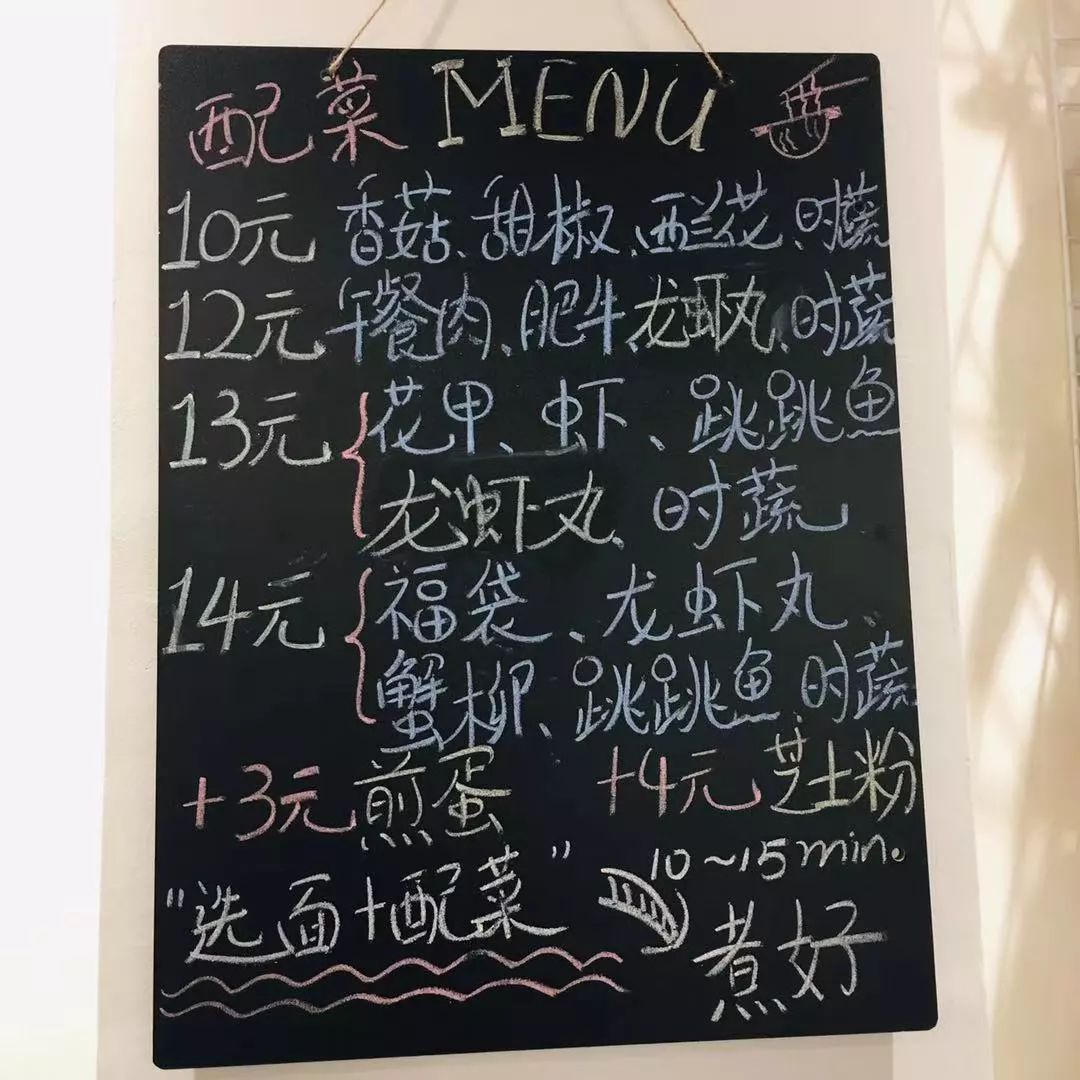 配菜 MENU
10元 香菇、甜椒、西兰花、时蔬
12元 午餐肉、肥牛、龙虾丸、时蔬
13元 花甲、虾、跳跳鱼
龙虾丸、时蔬
14元 福袋、龙虾丸、
蟹柳、跳跳鱼、时蔬
+3元 煎蛋 +4元 芝士粉
"选面+配菜" 10~15min.
煮好